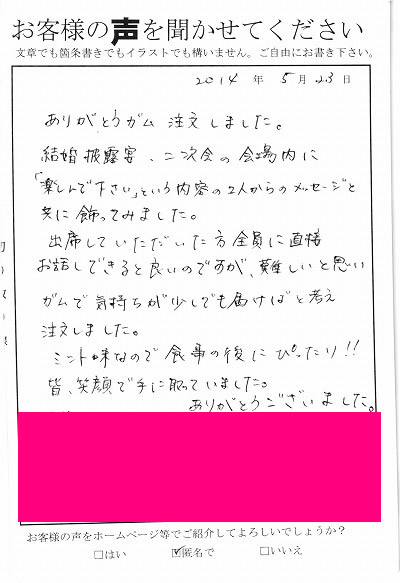 お客様の声を聞かせてください
文章でも箇条書きでもイラストでも構いません。ご自由にお書き下さい。
2014 年 5 月 23 日
ありがとうガム 注文しました。
結婚披露宴、二次会の会場内に
「楽しんで下さい」という内容の2人からのメッセージと
共に飾ってみました。
出席していただいた方全員に直接
お話しできると良いのですが、難しいと思い
ガムで気持ちが少しでも届けばと考え
注文しました。
ミント味なので食事の後にぴったり!!
皆、笑顔で手に取っていました。
ありがとうございました。
お客様の声をホームページ等でご紹介してよろしいでしょうか?
□はい ☑匿名で □いいえ